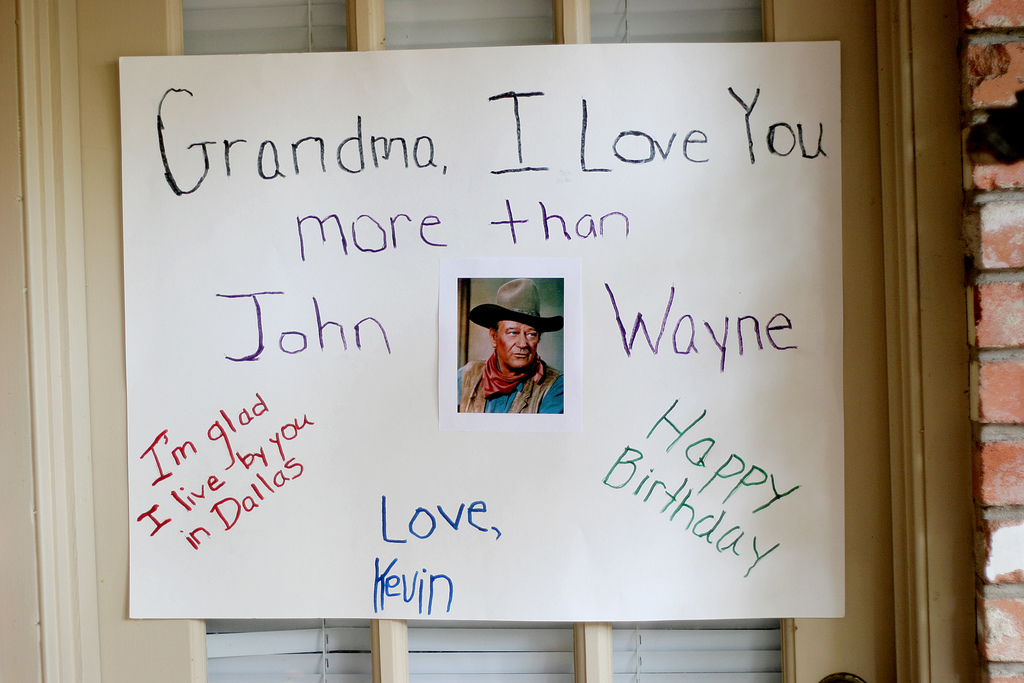 Grandma, I Love You
more than
John Wayne
I'm glad
I live by you
in Dallas
Happy
Birthday
Love,
Kevin